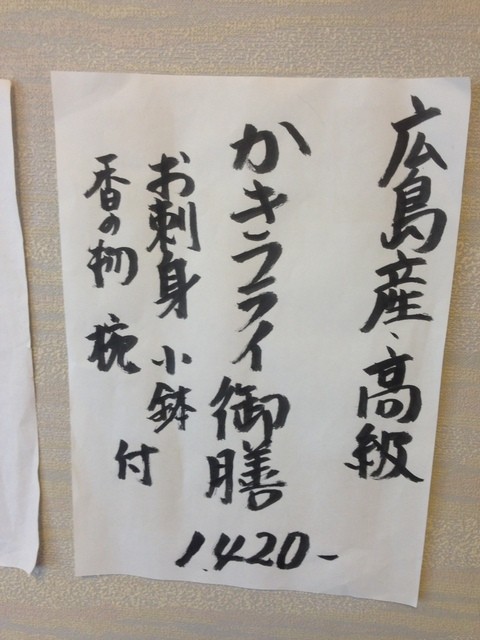 広島産、高級
かきフライ御膳
お刺身 小鉢
香の物 椀
付
1,420-